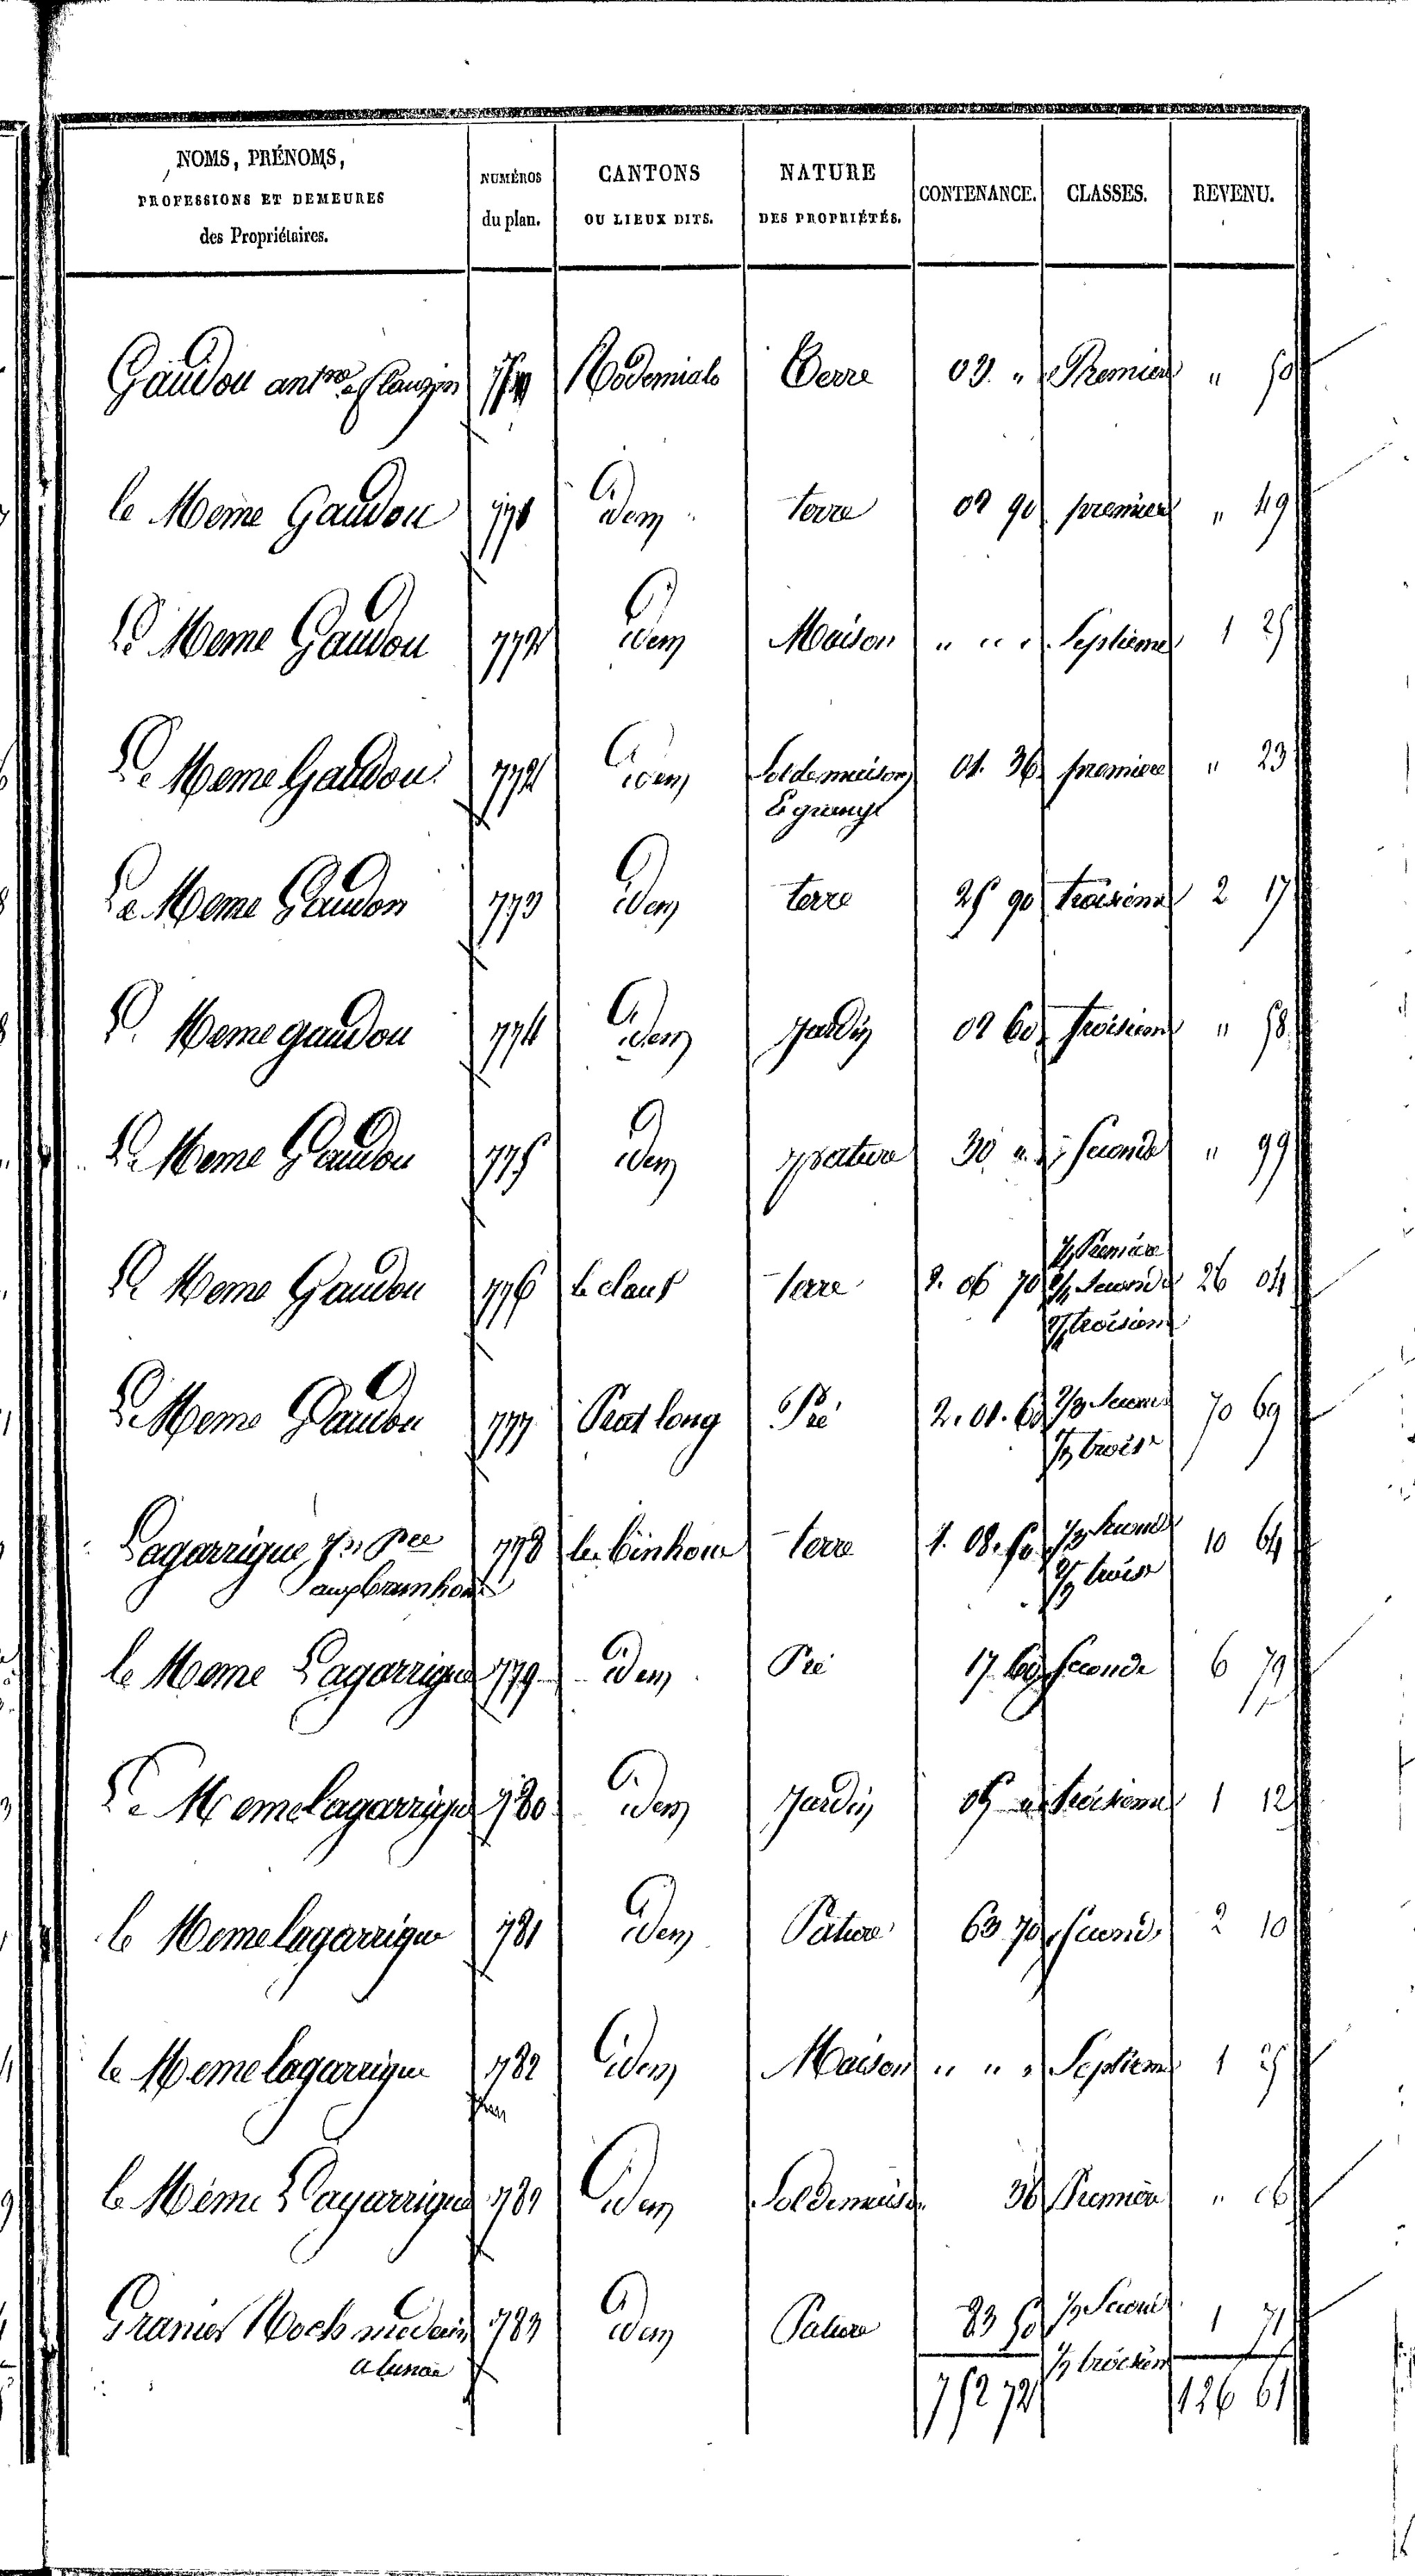 NOMS, PRÉNOMS,
PROFESSIONS ET DEMEURES
des Propriétaires.
NUMÉROS
du plan.
CANTONS
OU LIEUX DITS.
NATURE
DES PROPRIÉTÉS.
CONTENANCE.
CLASSES.
REVENU.
Gaudou Terre 03. " Premiere " 50
le Meme Gaudou 771 idem terre 02 90 premiere " 49
Le Meme Gaudou 772 idem Maison " " " Septieme 1 25
Le Meme Gaudou 772 idem Sol de maison 01. 36 premiere " 23
& grange
Le Meme Gaudou 773 idem terre 25 90 troisieme 2 17
Le Meme gaudou 774 idem jardin 02 60 troisieme " 58
Le Meme Gaudou 775 idem pature 30 " Seconde " 99
1/5 Premiere
Le Meme Gaudou 776 Le claus terre 2. 06 70 2/5 Seconde 26 04
2/5 troisieme
Le Meme Gaudou 777 Prat long Pré 2. 01. 60 2/3 Secon 70 69
1/3 trois
Lagarrigue 778 terre 1. 08. 50 1/3 Seconde 10 64
2/3 trois
le Meme Lagarrigue 779 idem Pré 17 60 Seconde 6 79
Le Meme Lagarrigue 780 idem Jardin 05 " troisieme 1 12
le Meme lagarrigue 781 idem Pature 63 70 Seconde 2 10
le Meme lagarrigue 782 idem Maison " " " Septieme 1 25
le Même Lagarrigue 782 idem Sol de maison 36 Premiere " 06
Granier Roch medecin 783 idem Pature 83 50 1/2 Seconde 1 71
1/2 troisiem
752 72 126 61